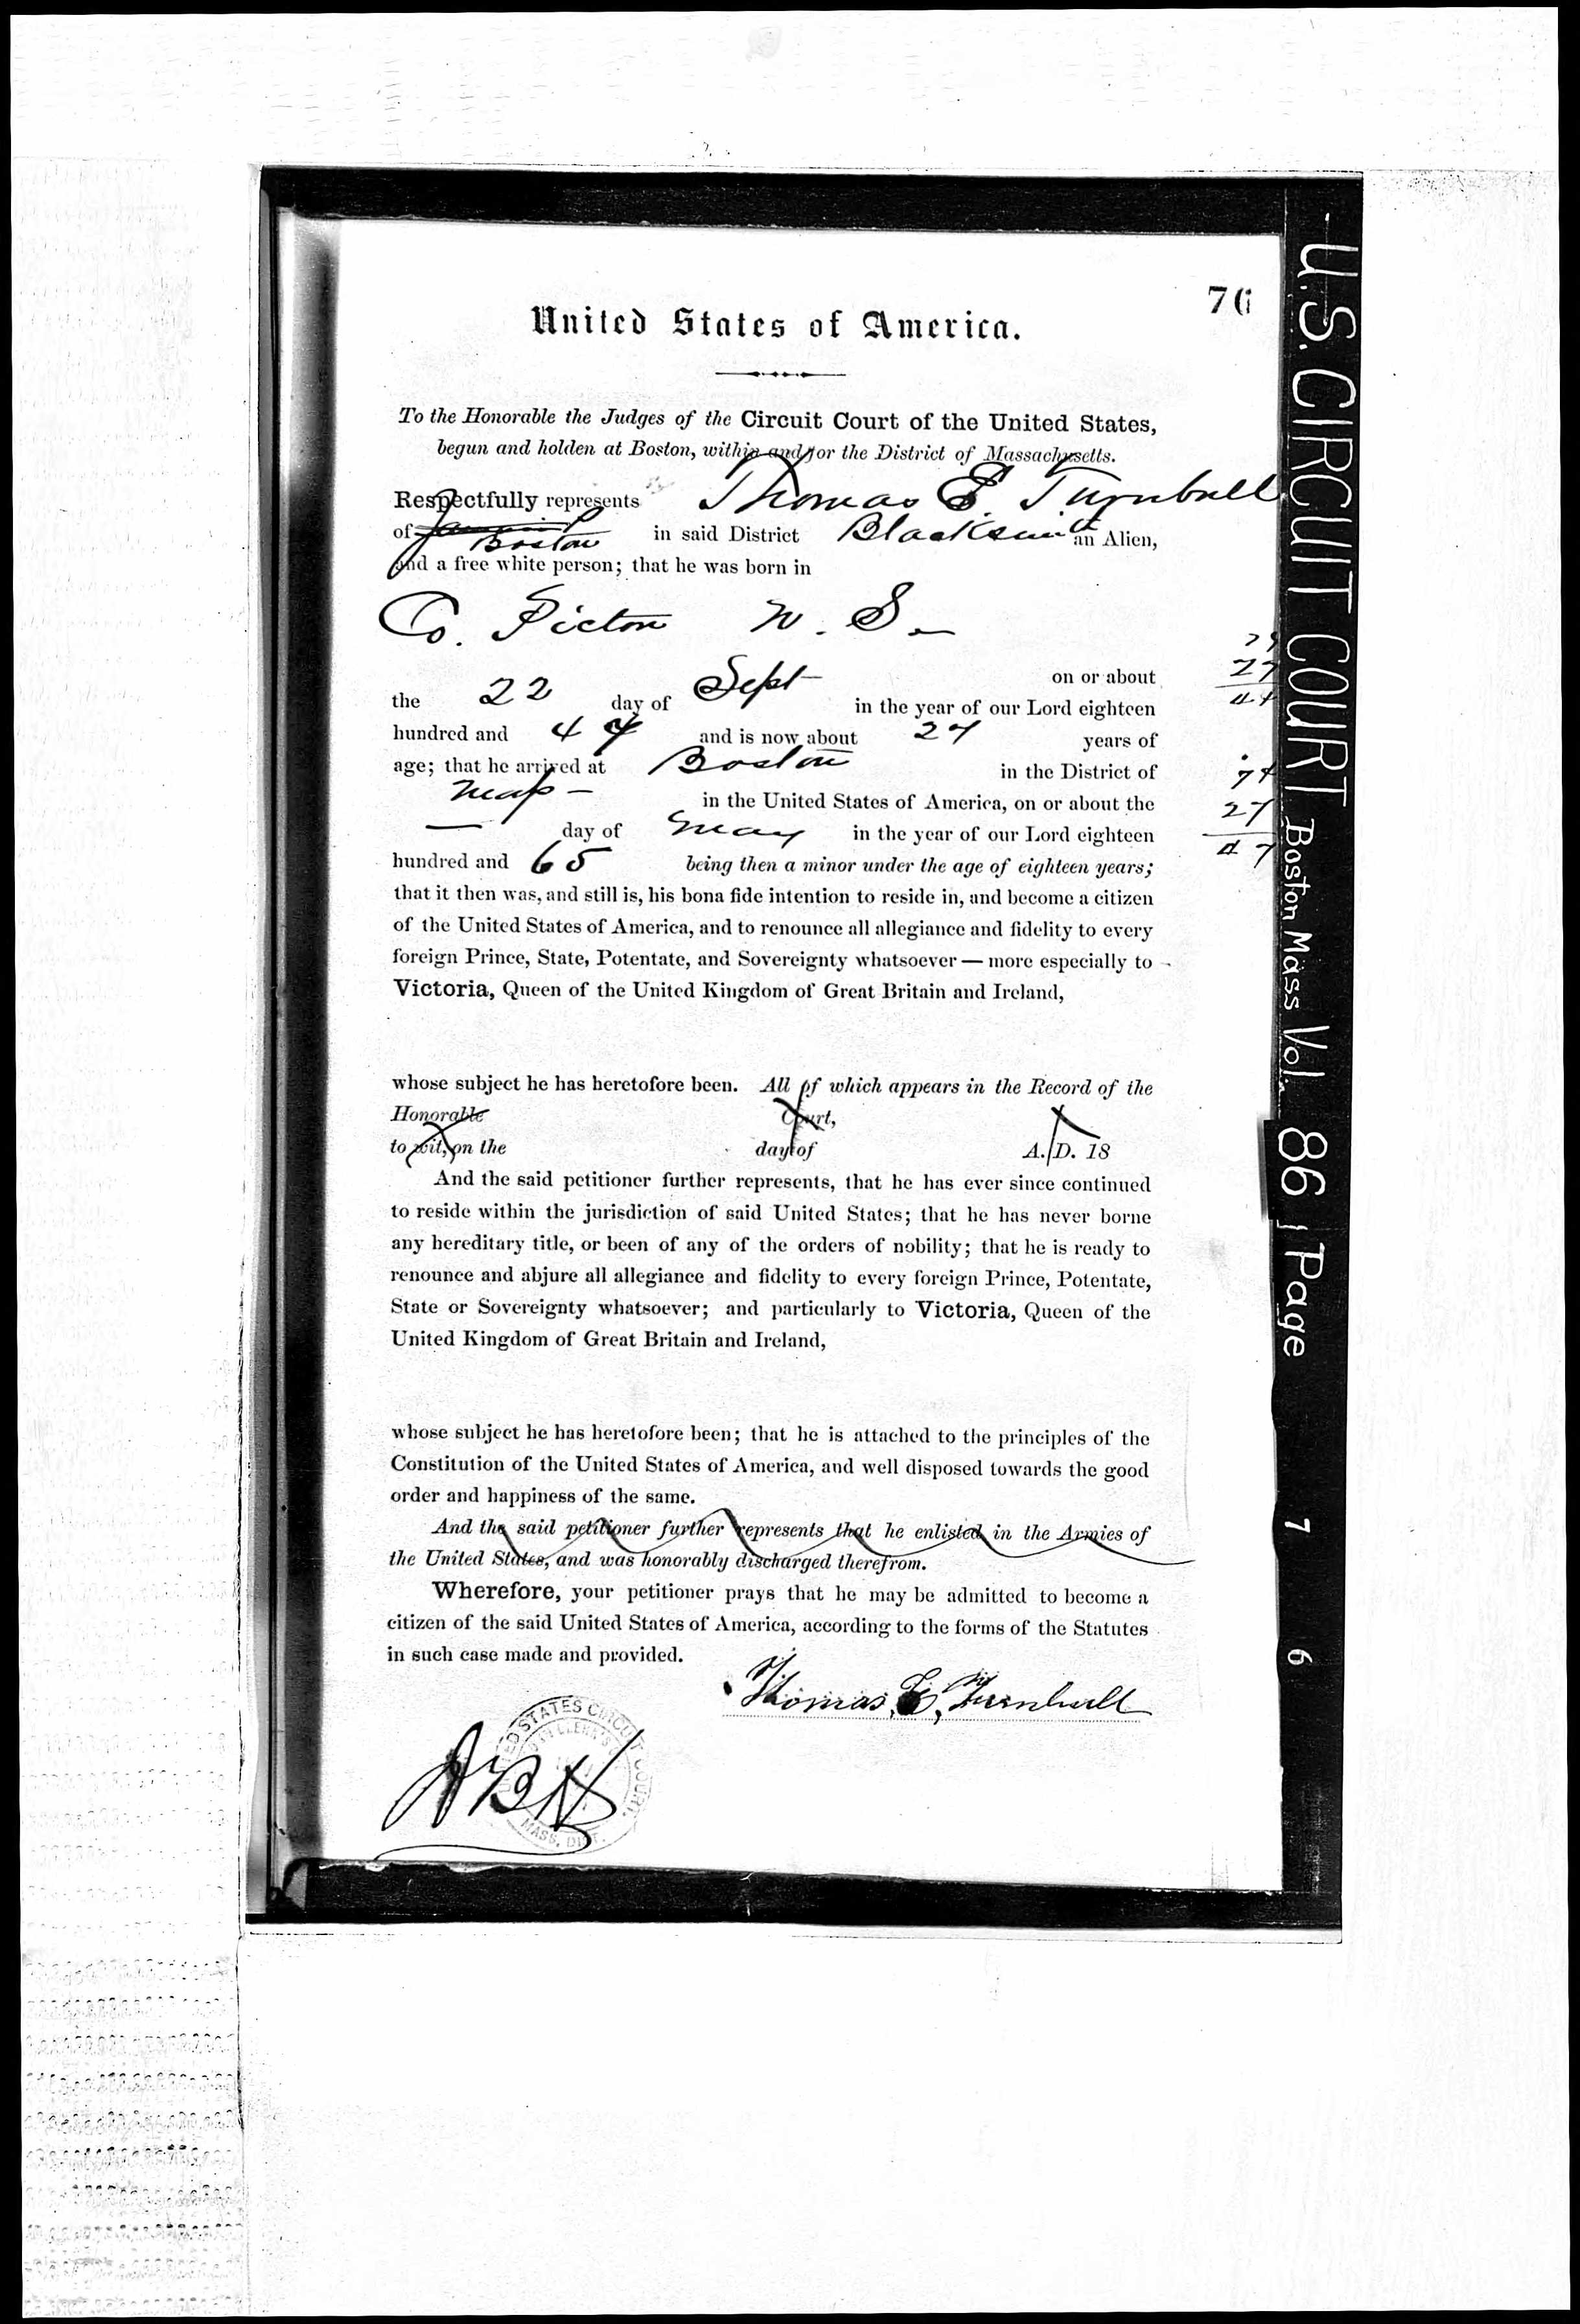 76
United States of America.
To the Honorable the Judges of the Circuit Court of the United States,
begun and holden at Boston, within and for the District of Massachusetts.
Respectfully represents Thomas E. Turnbull
of Boston in said District Blacksmith an Alien,
and a free white person; that he was born in
Co. Pictou N. S.
on or about
the 22 day of Sept in the year of our Lord eighteen
hundred and 47 and is now about 27 years of
age; that he arrived at Boston in the District of
Mass in the United States of America, on or about the
— day of May in the year of our Lord eighteen
hundred and 65 being then a minor under the age of eighteen years;
that it then was, and still is, his bona fide intention to reside in, and become a citizen
of the United States of America, and to renounce all allegiance and fidelity to every
foreign Prince, State, Potentate, and Sovereignty whatsoever — more especially to
Victoria, Queen of the United Kingdom of Great Britain and Ireland,
whose subject he has heretofore been. All of which appears in the Record of the
Honorable Court,
to wit, on the day of A. D. 18
And the said petitioner further represents, that he has ever since continued
to reside within the jurisdiction of said United States; that he has never borne
any hereditary title, or been of any of the orders of nobility; that he is ready to
renounce and abjure all allegiance and fidelity to every foreign Prince, Potentate,
State or Sovereignty whatsoever; and particularly to Victoria, Queen of the
United Kingdom of Great Britain and Ireland,
whose subject he has heretofore been; that he is attached to the principles of the
Constitution of the United States of America, and well disposed towards the good
order and happiness of the same.
And the said petitioner further represents that he enlisted in the Armies of
the United States, and was honorably discharged therefrom.
Wherefore, your petitioner prays that he may be admitted to become a
citizen of the said United States of America, according to the forms of the Statutes
in such case made and provided.
Thomas E. Turnbull
UNITED STATES CIRCUIT COURT. MASS. DIST.
27
74
27
47
U.S. CIRCUIT COURT Boston Mass Vol. 86 Page 76